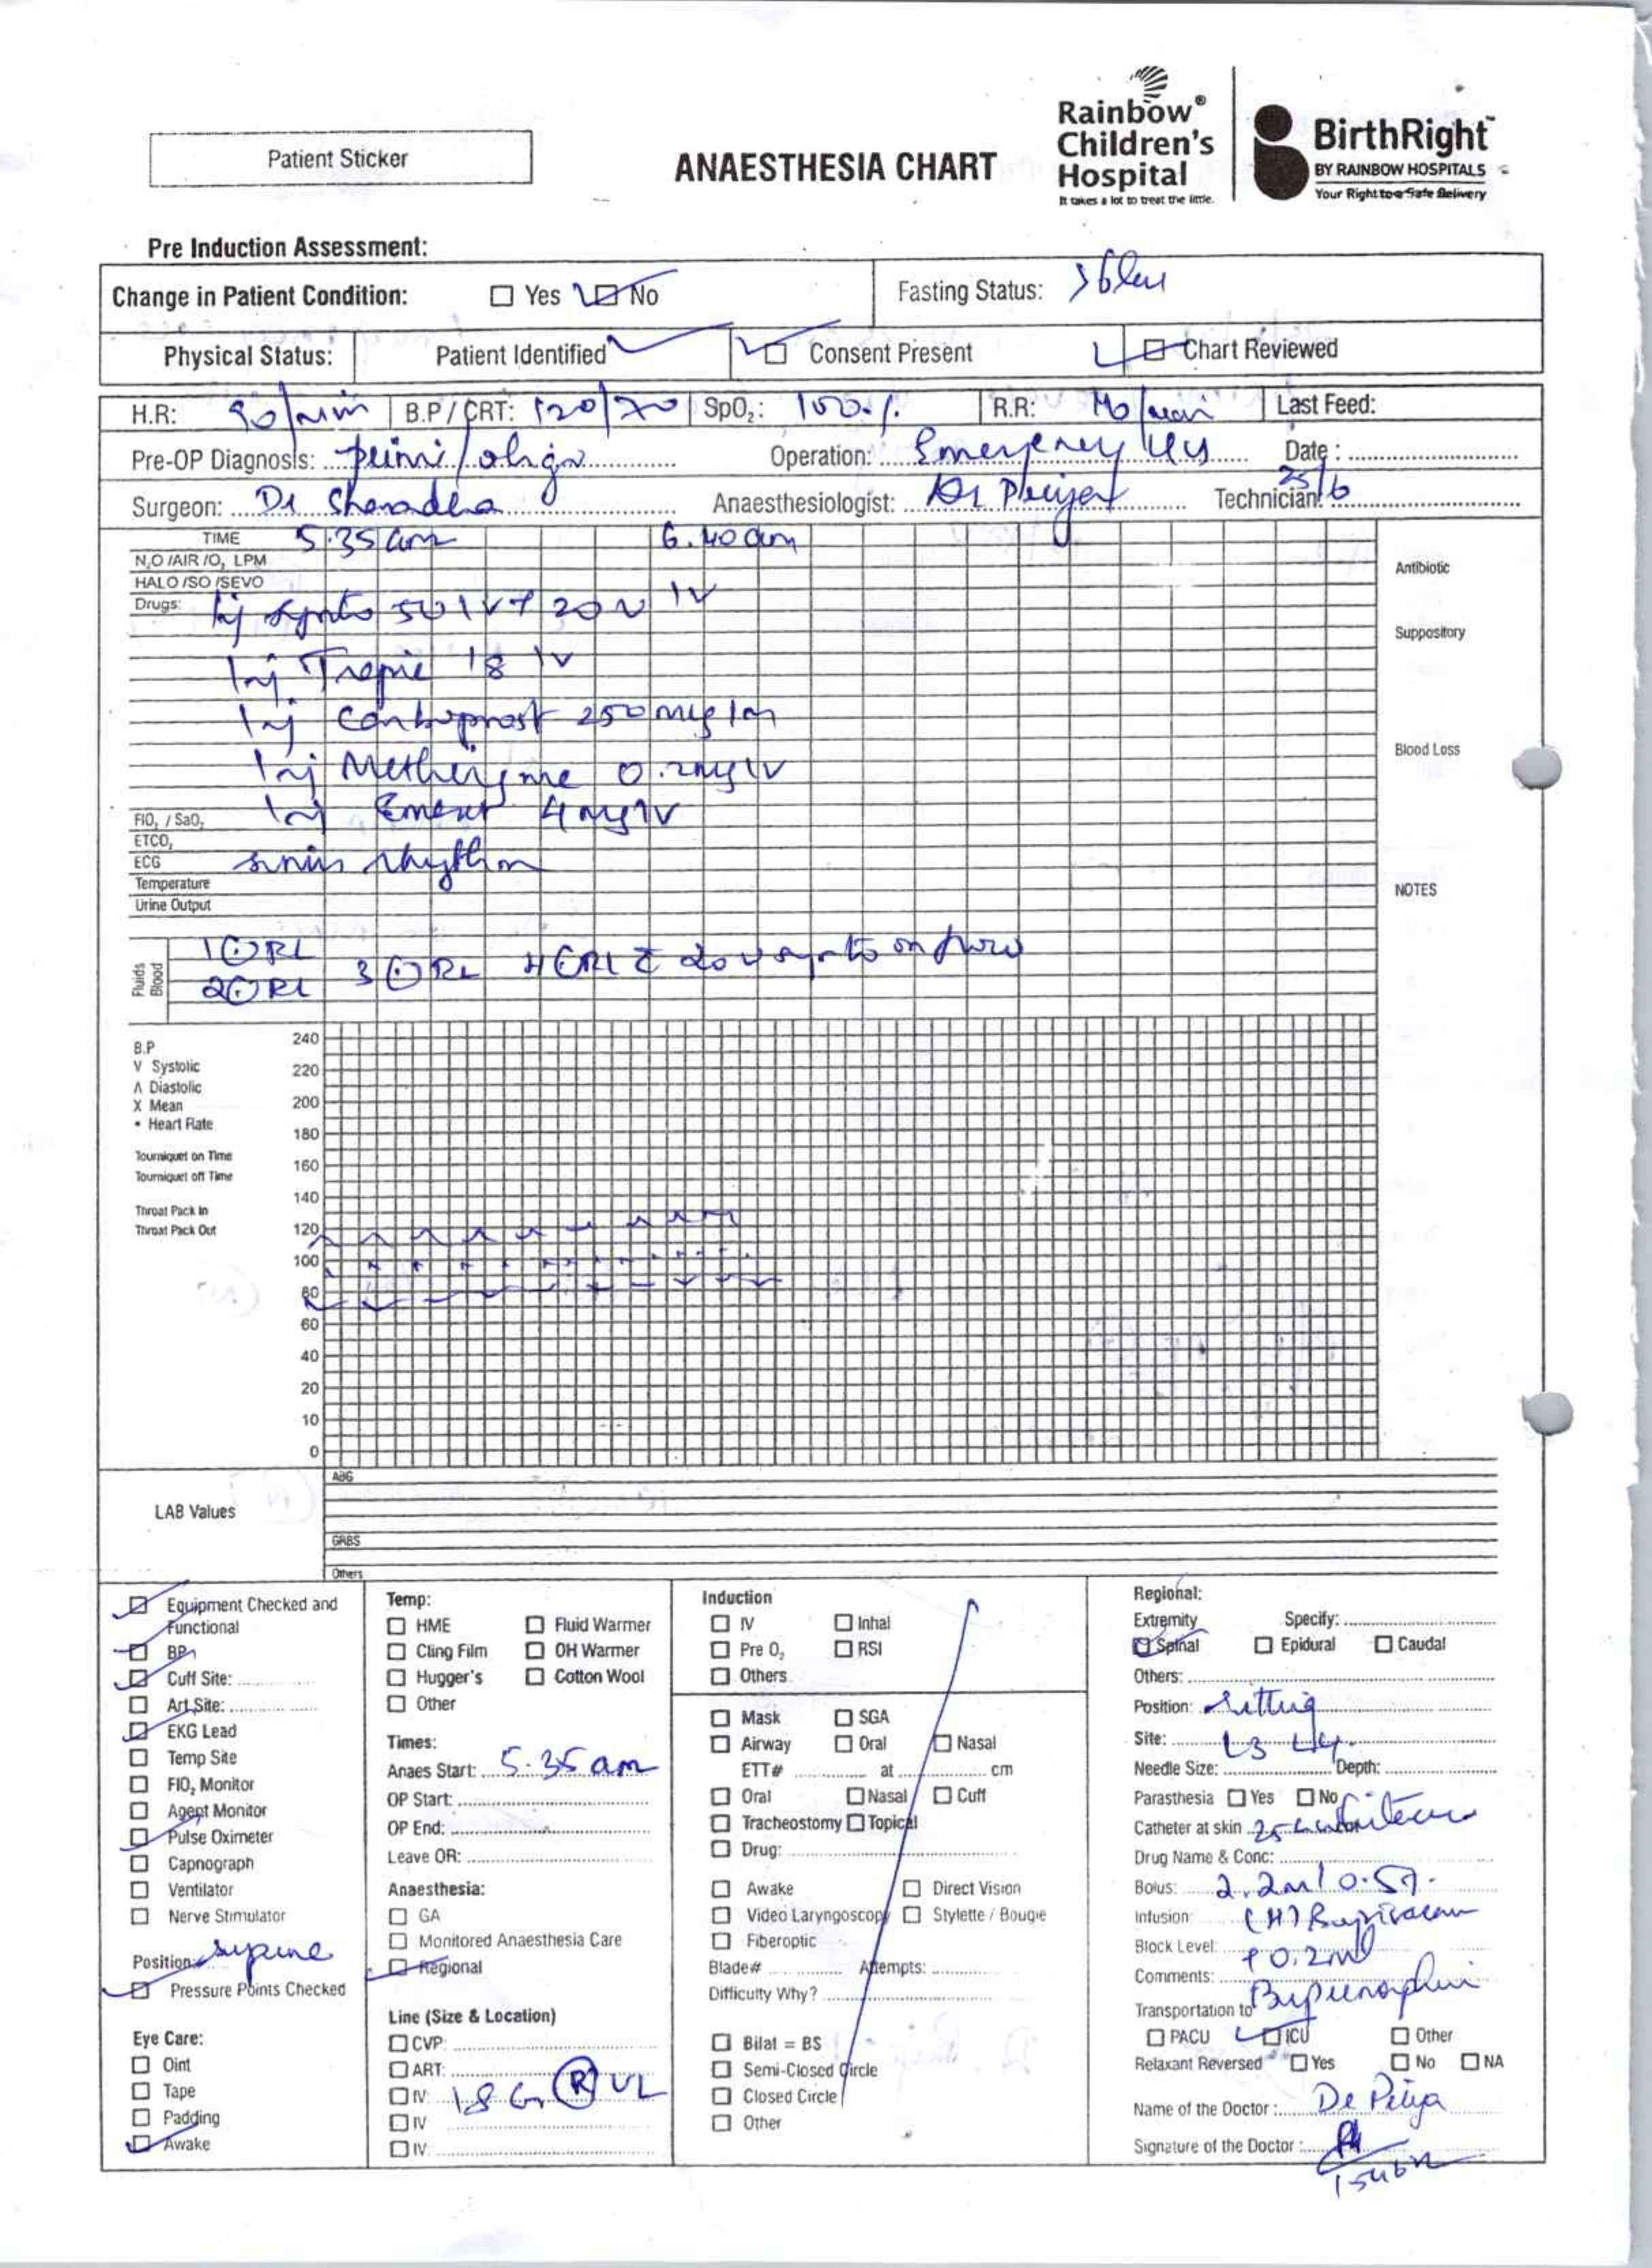 Patient Sticker
ANAESTHESIA CHART
Rainbow®
Children's
Hospital
It takes a lot to treat the little.
BirthRight™
BY RAINBOW HOSPITALS
Your Right to a Safe Delivery
Pre Induction Assessment:
Change in Patient Condition: Yes No Fasting Status:
Physical Status: Patient Identified Consent Present Chart Reviewed
H.R: 90/min B.P / CRT: 120/70 SpO₂: 100% R.R: Last Feed:
Pre-OP Diagnosis: primi/oligo Operation: Emergency Date :
Surgeon: Dr Anaesthesiologist: Dr Technician: 25/6
TIME 5.35 am 6.40 am
N₂O /AIR /O₂ LPM
HALO /SO /SEVO
Drugs: Inj synto 5U IV + 20U IV
Inj IV
Inj Carboprost 250 mcg Im
Inj Methergine 0.2mg IV
Inj Emeset 4mg IV
FIO₂ / SaO₂
ETCO₂
ECG sinus rhythm
Temperature
Urine Output
Antibiotic
Suppository
Blood Loss
NOTES
Fluids
Blood
1 RL
2 RL 3 RL 4 RL c 20 U synto on flow
B.P
V Systolic
Λ Diastolic
X Mean
• Heart Rate
Tourniquet on Time
Tourniquet off Time
Throat Pack In
Throat Pack Out
240
220
200
180
160
140
120
100
80
60
40
20
10
0
LAB Values
ABG
GRBS
Others
Equipment Checked and
Functional
BP
Cuff Site:
Art.Site:
EKG Lead
Temp Site
FIO₂ Monitor
Agent Monitor
Pulse Oximeter
Capnograph
Ventilator
Nerve Stimulator
Position: supine
Pressure Points Checked
Eye Care:
Oint
Tape
Padding
Awake
Temp:
HME Fluid Warmer
Cling Film OH Warmer
Hugger's Cotton Wool
Other
Times:
Anaes Start: 5.35 am
OP Start:
OP End:
Leave OR:
Anaesthesia:
GA
Monitored Anaesthesia Care
Regional
Line (Size & Location)
CVP:
ART:
IV: 18 G R UL
IV
IV:
Induction
IV Inhal
Pre O₂ RSI
Others
Mask SGA
Airway Oral Nasal
ETT# at cm
Oral Nasal Cuff
Tracheostomy Topical
Drug:
Awake Direct Vision
Video Laryngoscopy Stylette / Bougie
Fiberoptic
Blade# Attempts:
Difficulty Why?
Bilat = BS
Semi-Closed Circle
Closed Circle
Other
Regional:
Extremity Specify:
Spinal Epidural Caudal
Others:
Position: sitting
Site: L3 L4.
Needle Size: Depth:
Parasthesia Yes No
Catheter at skin 25
Drug Name & Conc:
Bolus: 2.2ml 0.5%
Infusion: (H)
Block Level: + 0.2ml
Comments:
Transportation to
PACU ICU Other
Relaxant Reversed Yes No NA
Name of the Doctor : Dr
Signature of the Doctor :